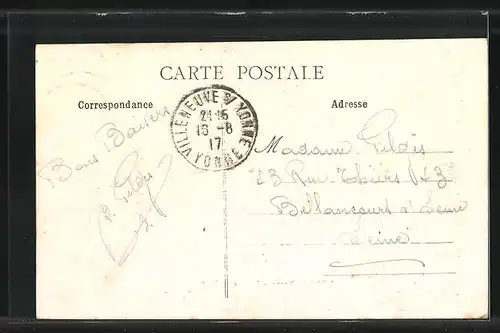 CARTE POSTALE
Correspondance
Adresse
VILLENEUVE S/ YONNE
21 15
16 -8
17
YONNE
Bons Baisers
Madame
23 Rue Thiers 23
Billancourt s/ Seine
Seine